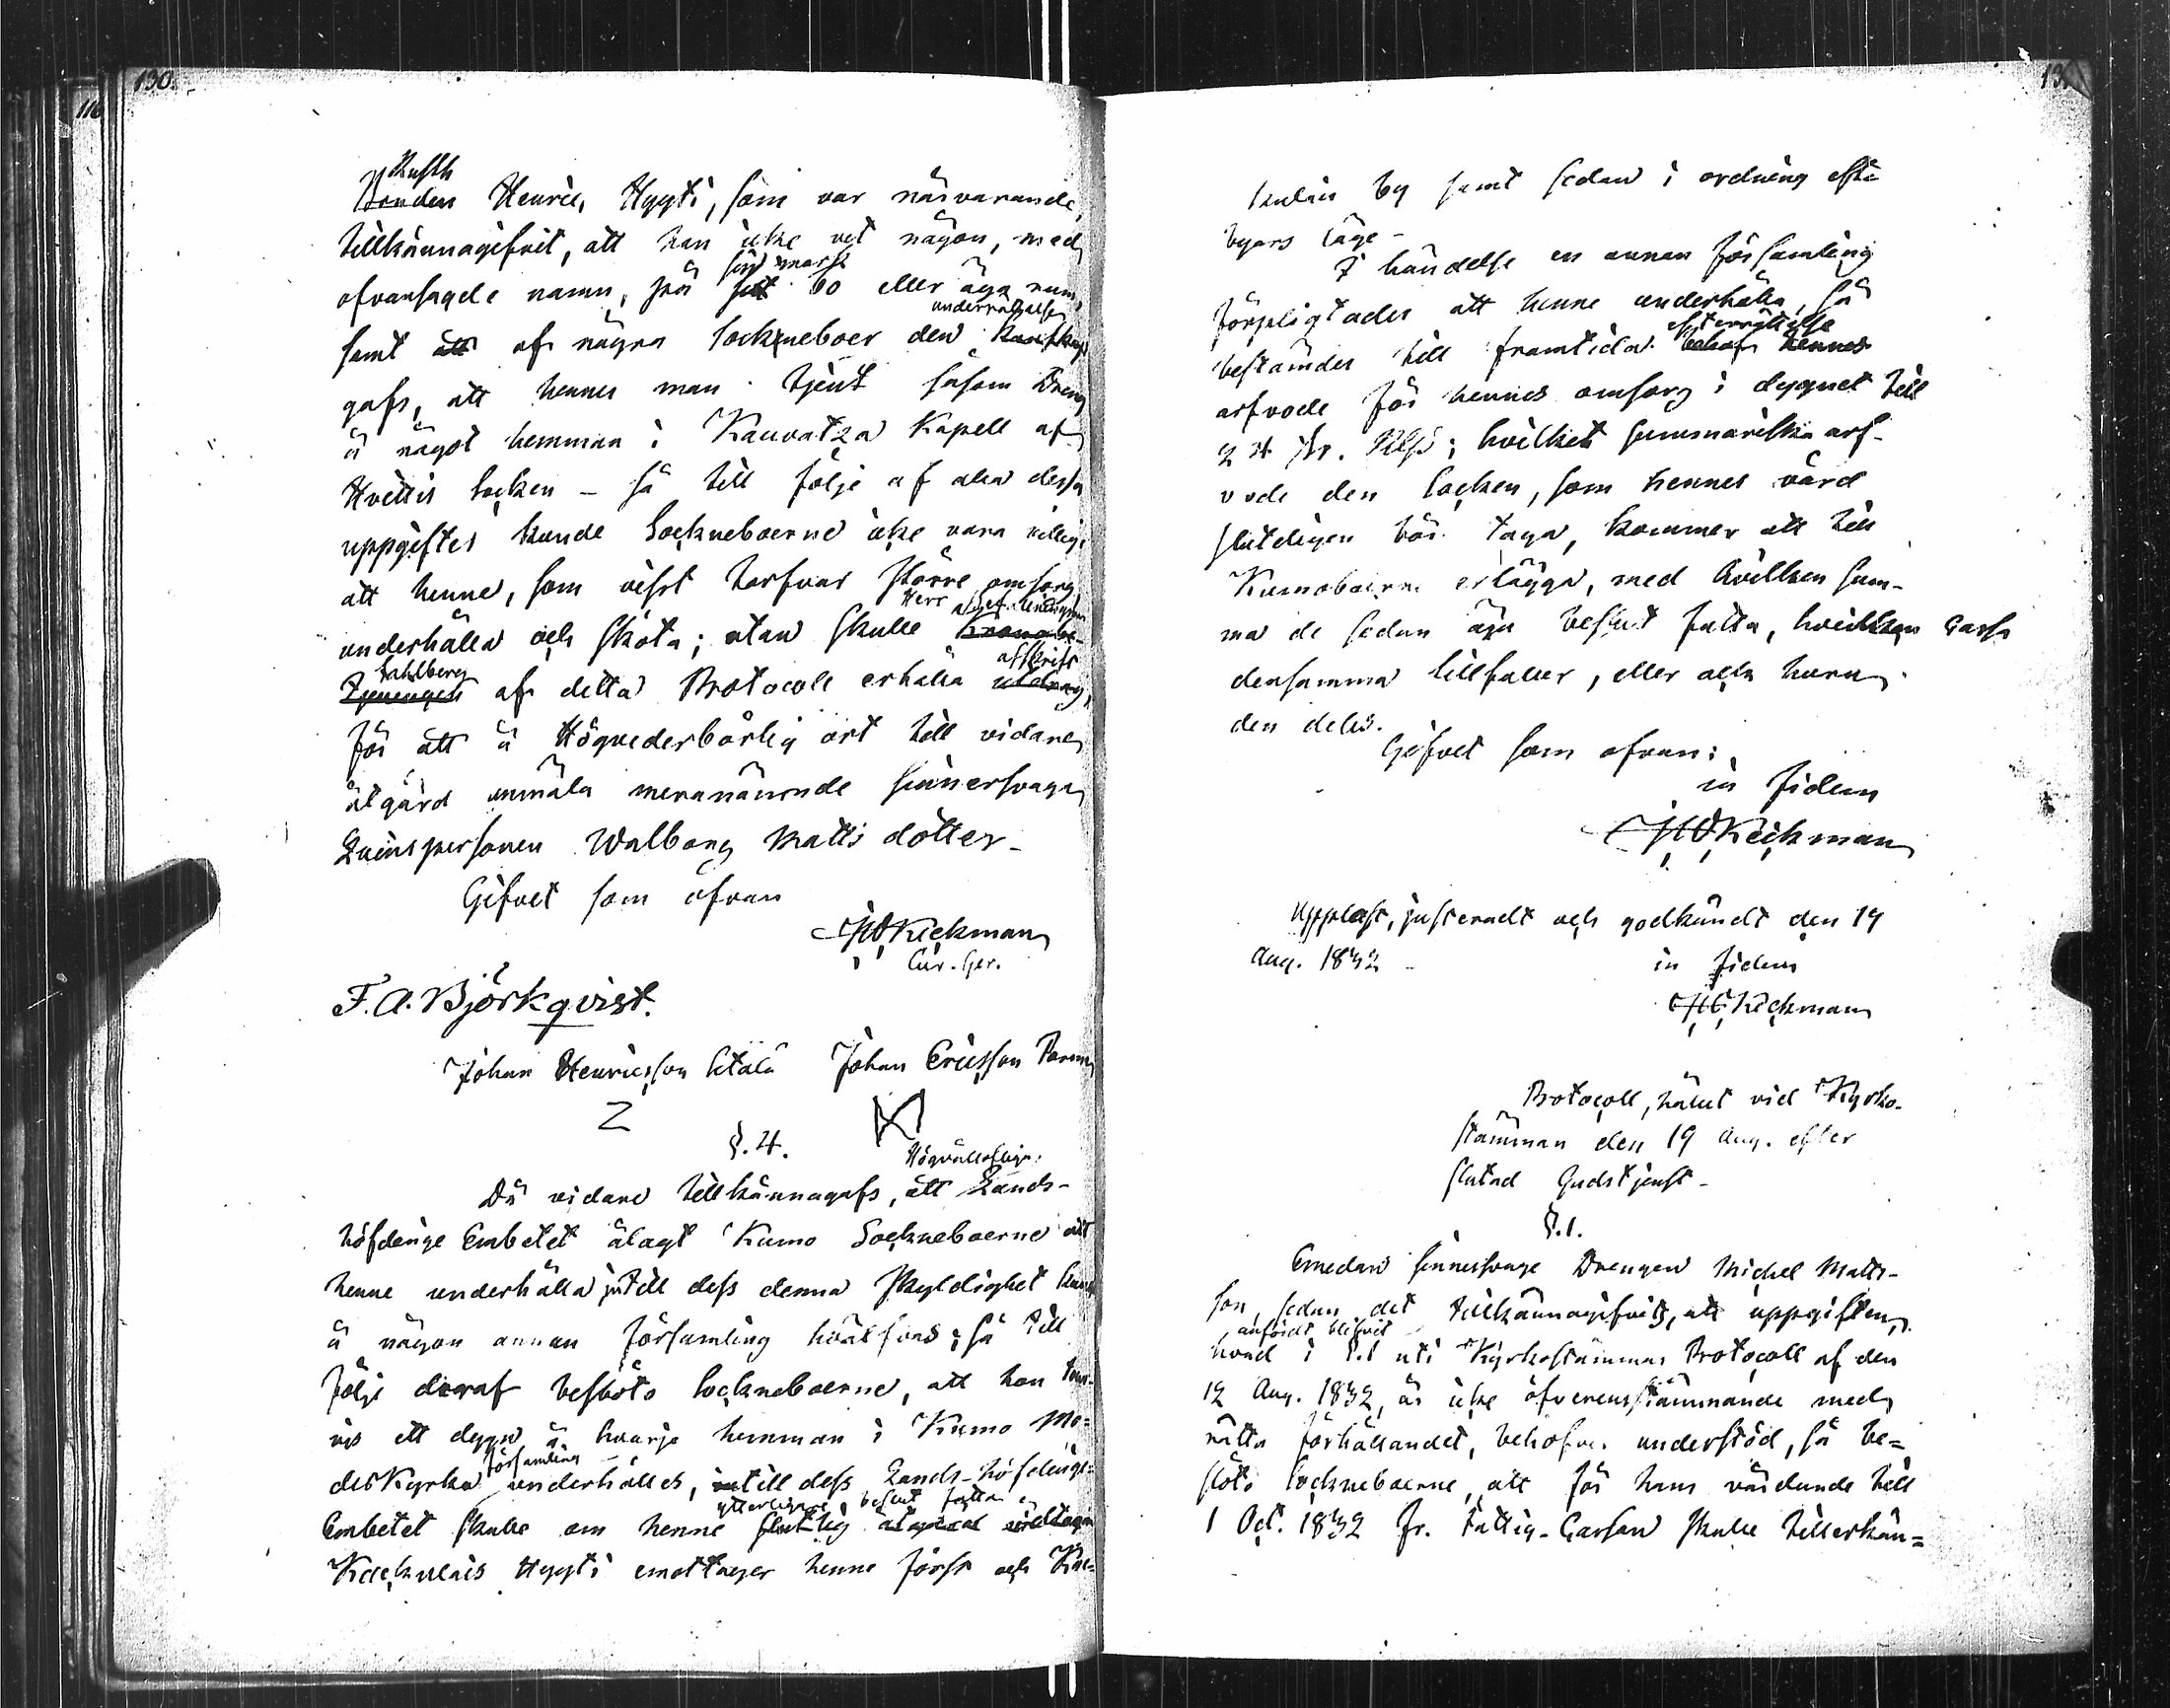 130.
116
Rusth
Bonden Henric Hygti, som var närvarande,
tillkännagifvit, att han icke vet någon, med
sin mark
ofvansagde namn, på sitt bo eller äga rum,
underrättelse
samt att af några Sockneboer den Kunskap
gafs, att hennes man tjent såsom Dreng
å något hemman i Kauvatza Kapell af
Hvittis Socken – så till följe af alla dessa
uppgifter kunde Sockneboerne icke vara villige
att henne, som visst torfvar större omsorg,
Herr
underhålla och sköta; utan skulle Krono-
Sahlberg afskrift
af detta Protocoll erhålla utdrag,
för att å Högvederbörlig ort till vidare
åtgärd anmäla meranämnde sinnersvaga
Qvinspersonen Walborg Mattsdotter –
Gifvet som ofvan
Kickman
Cur. Ger.
F. A. Björkqvist.
Johan Henricsson Johan Ericsson
§. 4.
Högvälloflige
Då vidare tillkännagafs, att Lands-
höfdinge Embetet ålagt Kumo Sockneboerne att
henne underhålla intill dess denna skyldighet kund
å någon annan församling hvälfvas; så till
följe deraf beslöto Sockneboerne, att hon tur-
vis ett dygn å hvarje hemman i Kumo Mo-
församling
derkyrko underhålles, intill dess Lands-höfdinge-
ytterligare beslut fatta
Embetet skulle om henne slutlig åtgärd vidtaga
Hygti emottager henne först och
131
by samt sedan i ordning efter
byars läge –
I händelse en annan församling
förpligtades att henne underhålla, så
efterrättelse
bestämdes till framtida behof hennes
arfvode för hennes omsorg i dygnet till
24 kr. Rgs; hvilket summariska arf-
vode den Socken, som hennes vård
slutligen bör taga, kommer att till
Kumoboerne erlägga, med hvilken sum-
ma de sedan äga beslut fatta, hvilken Cassa
densamma tillfaller, eller ock huru
den delas.
Gifvet som ofvan:
in fidem
Kickman
Uppläst, justeradt och godkändt den 19
Aug. 1832 – in fidem
Kickman
Protocoll, hållit vid Kyrko-
stämman den 19 Aug. efter
slutad Gudstjenst –
§. 1.
Emedan sinnessvage Drengen Michel Matts-
son, sedan det tillkännagifvits, att uppgiften,
anfördt blifvit
hvad i §.1 uti Kyrkostämmas Protocoll af den
12 Aug. 1832, är icke öfverensstämmande med
rätta förhållandet, behöfver understöd, så be-
slöto Sockneboerne, att för hans vårdande till
1 Oct. 1832 fr. Fattig-Cassan skulle tillerkän-